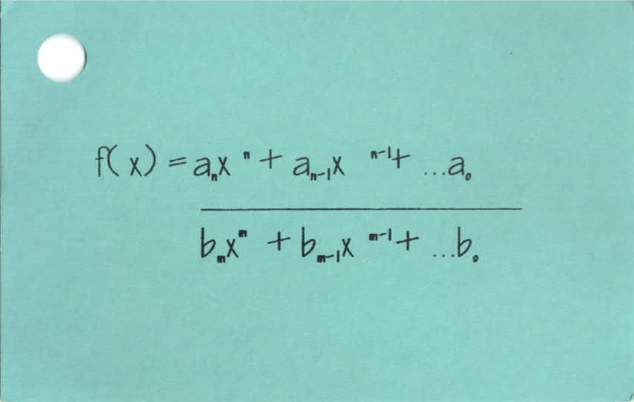 f(x) = aₙxⁿ + aₙ₋₁xⁿ⁻¹ + ...a₀
bₘxᵐ + bₘ₋₁xᵐ⁻¹ + ...b₀